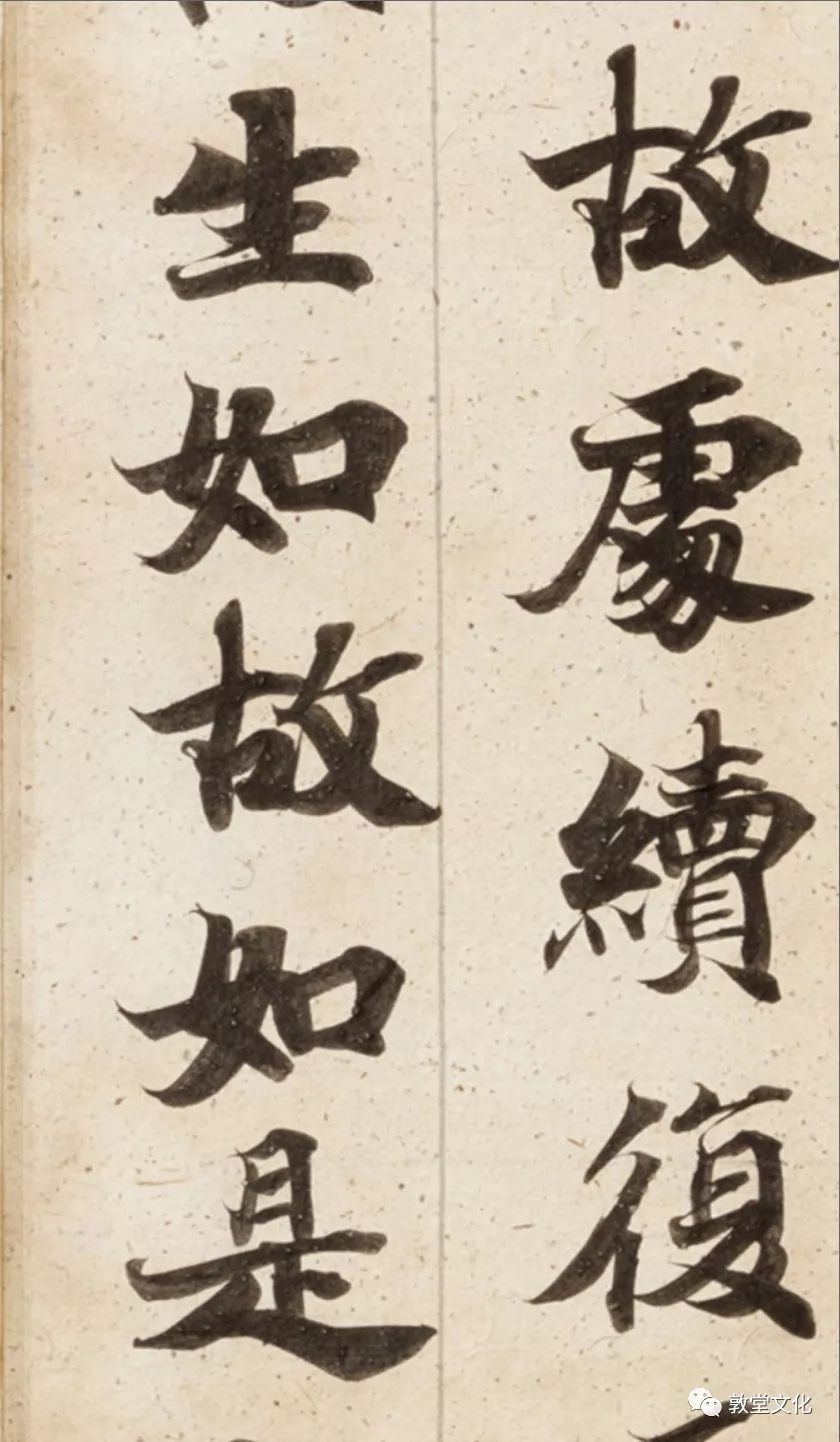 故處續復
生如故如是
敦堂文化